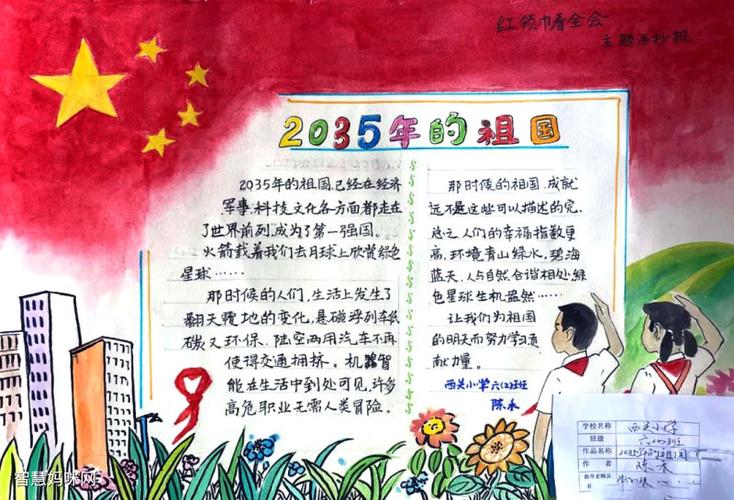 红领巾看全会
主题手抄报
2035年的祖国
2035年的祖国,已经在经济
军事、科技、文化各方面都走在
了世界前列,成为了第一强国。
火箭载着我们去月球上欣赏绿色
星球……
那时候的人们,生活上发生了
翻天覆地的变化,悬磁浮列车低
碳又环保、陆空两用汽车不再
使得交通拥挤。机器智
能在生活中到处可见,许多
高危职业无需人类冒险。
那时候的祖国,成就
远不是这些可以描述的完。
总之,人们的幸福指数更
高,环境青山绿水,碧海
蓝天,人与自然合谐相处,绿
色星球生机盎然……
让我们为祖国
的明天而努力学习,
献力量。
西关小学六(2)班
陈禾
学校名称 西关小学
班级 六(2)班
作品名称 2035年的祖国
作者 陈禾
指导老师
智慧妈咪网